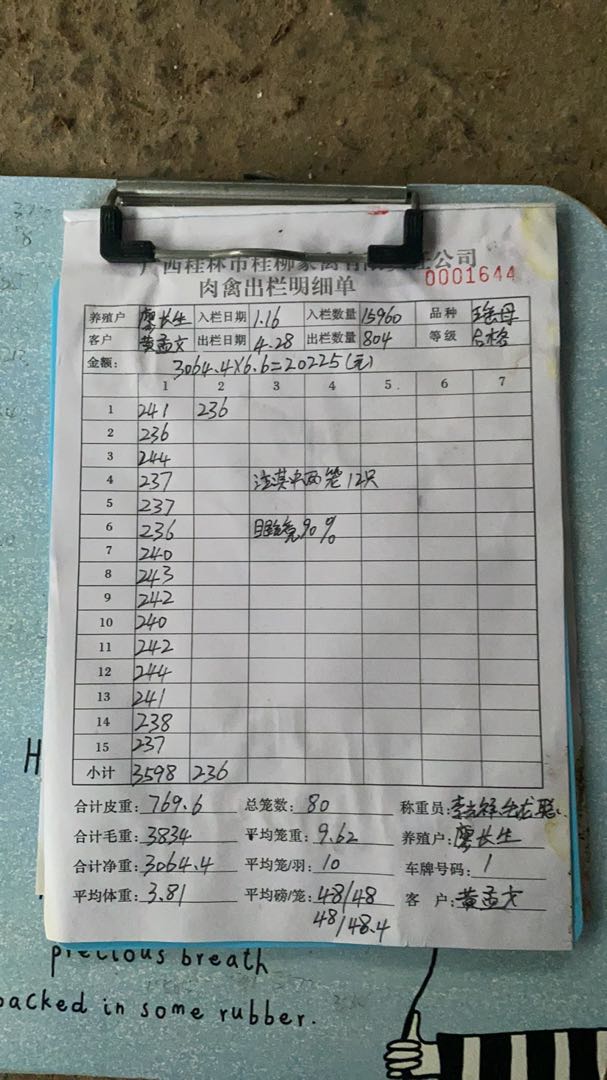 广西桂林市桂柳家禽有限责任公司
肉禽出栏明细单 0001644
养殖户 廖长生 入栏日期 1.16 入栏数量 15960 品种 瑶母
客户 黄孟文 出栏日期 4.28 出栏数量 804 等级 合格
金额: 3064.4×6.6=20225(元)
1 2 3 4 5 6 7
1 241 236
2 236
3 244
4 237 注:其中两笼12只
5 237
6 236 眼亮90%
7 240
8 243
9 242
10 240
11 242
12 244
13 241
14 238
15 237
小计 3598 236
合计皮重: 769.6 总笼数: 80 称重员:
合计毛重: 3834 平均笼重: 9.62 养殖户: 廖长生
合计净重: 3064.4 平均笼/羽: 10 车牌号码: 1
平均体重: 3.81 平均磅/笼: 48/48 客 户: 黄孟文
48/48.4
precious breath
packed in some rubber.